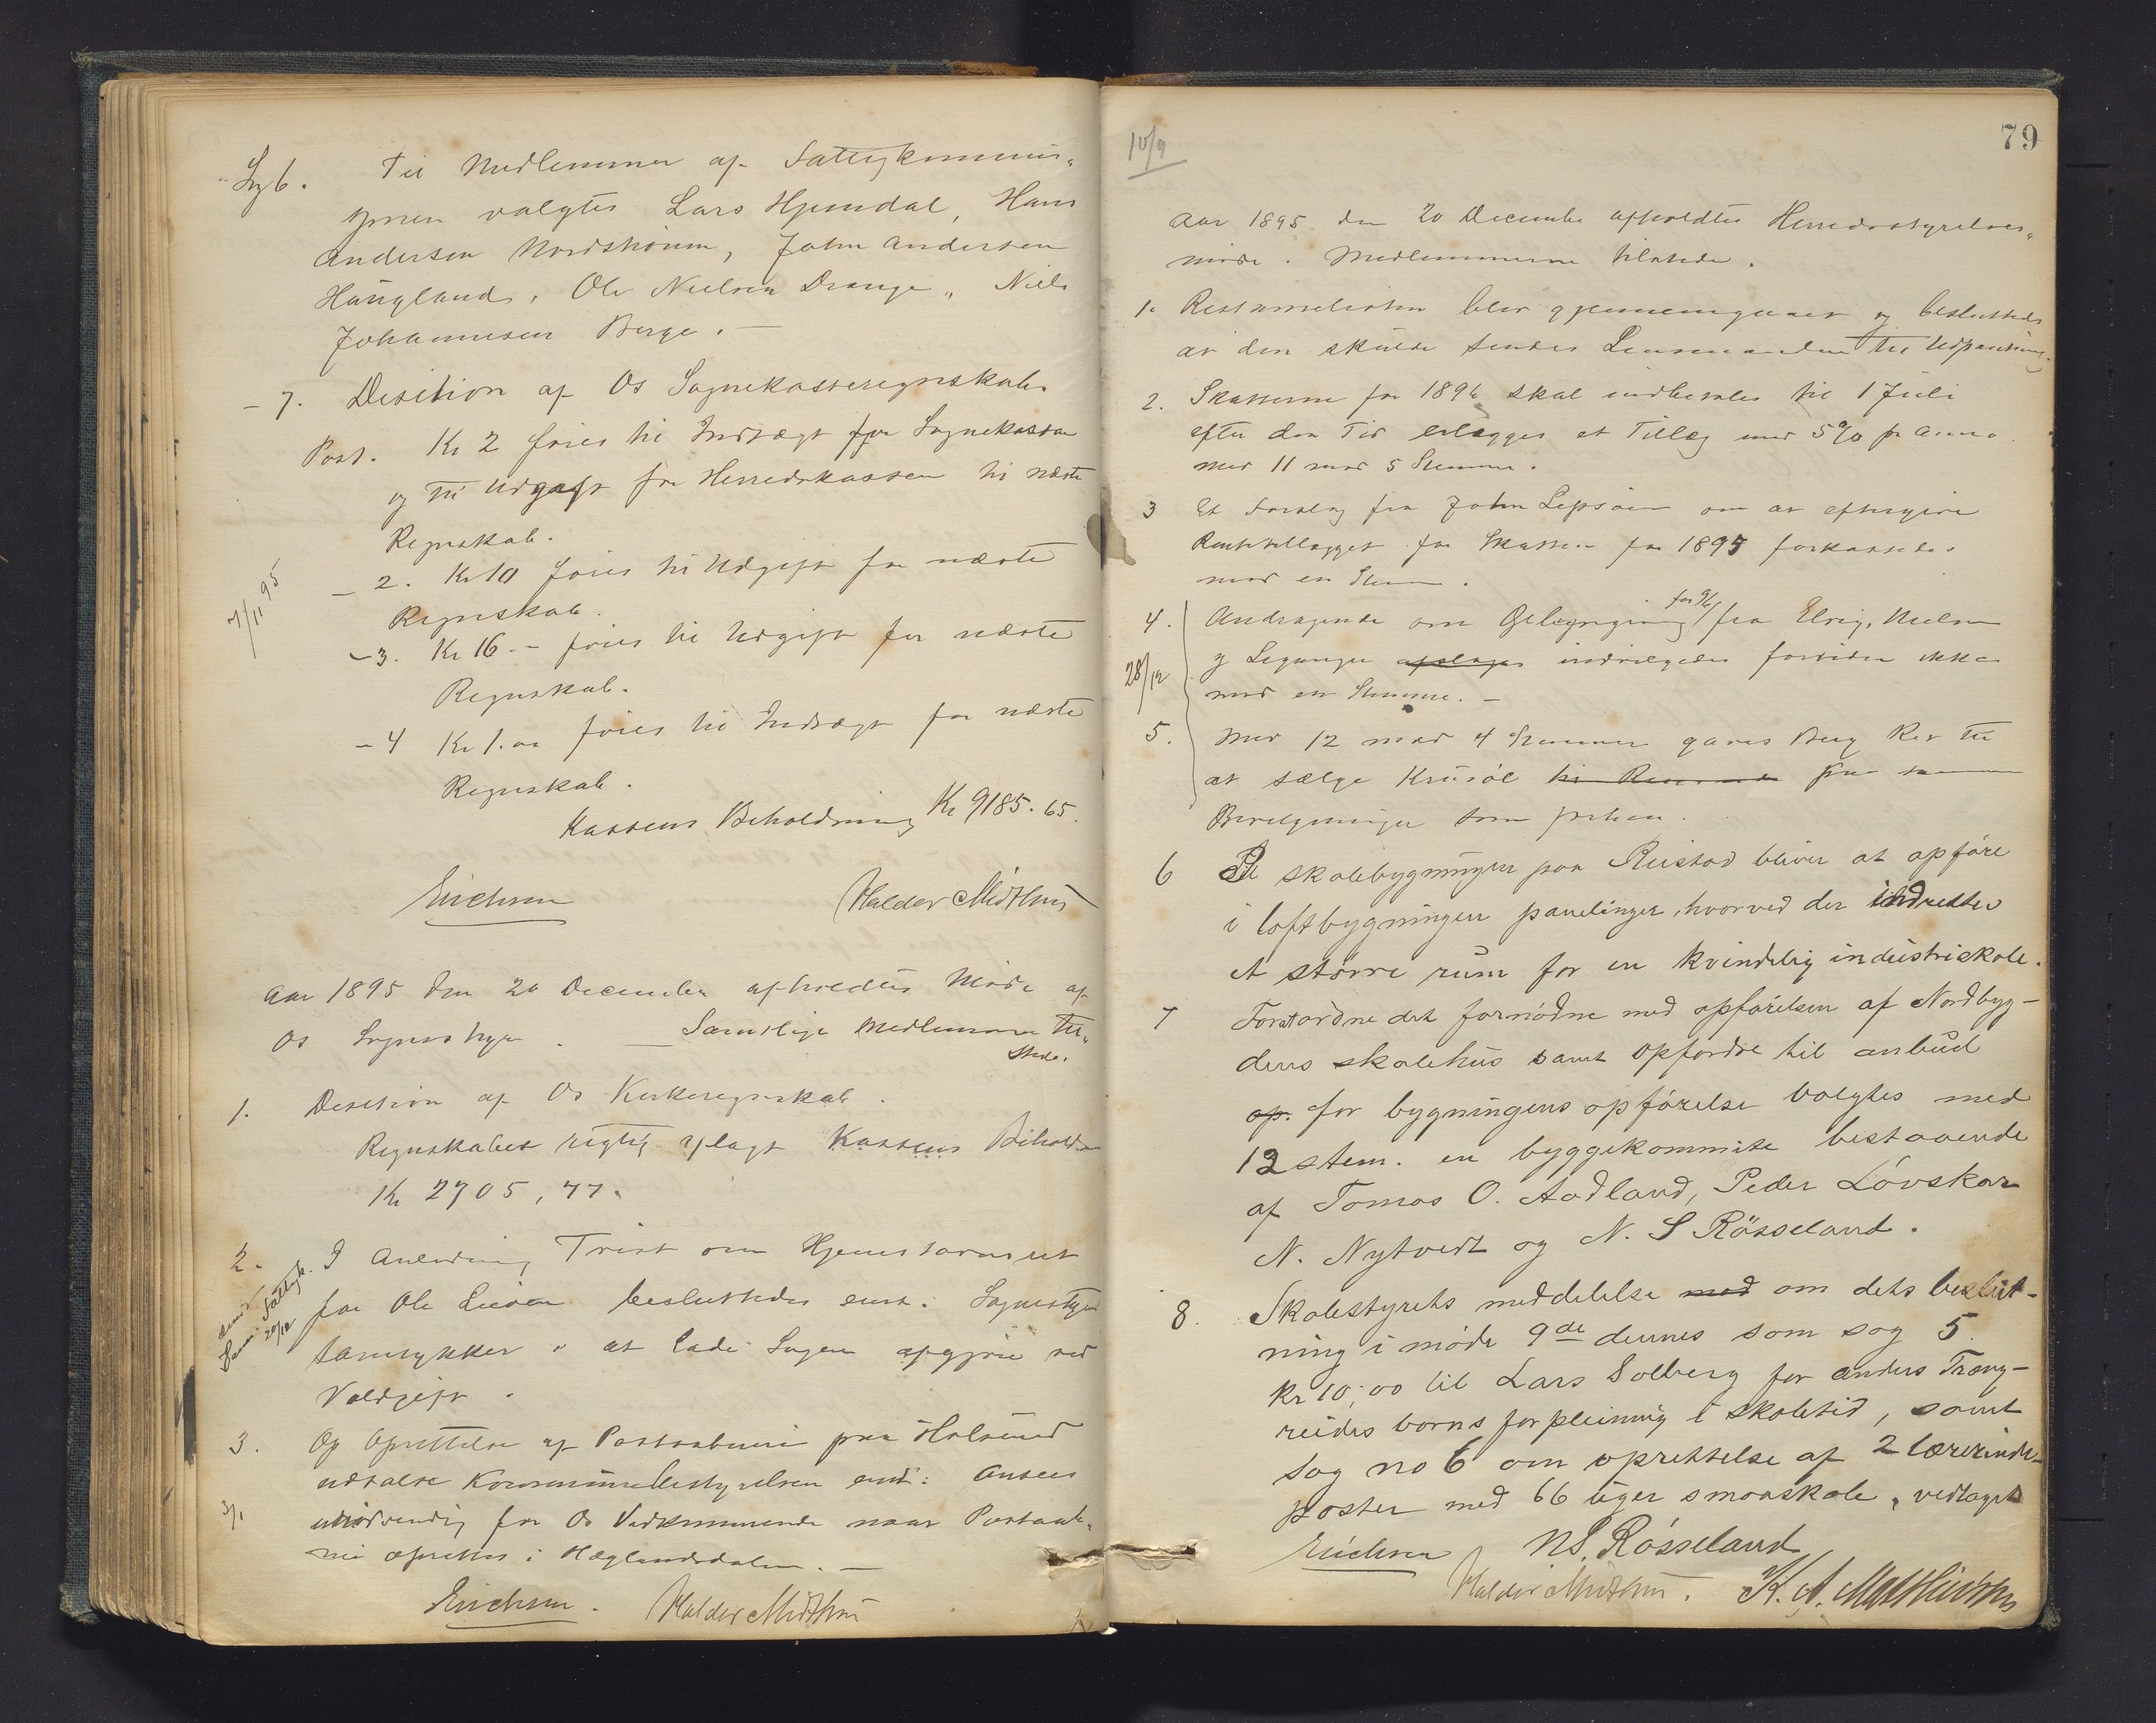 Sag 6. Til Medlemmer af Fattigkommis-
ionen valgtes Lars Hjemdal, Hans
Andersen Nordströnen, John Andersen
Haugland, Ole Nielsen Drange, Niels
Johannesen Berge. —
- 7. Desition af Os Sognekasseregnskab.
Post. Kr 2 föies til Indtægt for Sognekassen
og til Udgift for Herredskassen til næste
Regnskab.
- 2. Kr 10 föies til Udgift for næste
Regnskab.
7/11 95
- 3. Kr 16.- föies til Udgift for næste
Regnskab.
- 4 Kr 1.00 föies til Indtægt for næste
Regnskab.
Kassens Beholdning Kr 9185.65.
Erichsen Halder Midthus
Aar 1895 den 20 December afholdtes Möde af
Os Sognestyre. — Samtlige Medlemmer til-
stede.
1. Desition af Os Kirkeregnskab.
Regnskabet rigtig aflagt Kassens Behold
Kr 2705,77.
2. I Anledning Trist om Hjemstavnsret
for Ole besluttedes enst: Sognestyret
samtykker i at lade Sagen afgjöre ved
Voldgift.
Fattigk. 20/12
3. Og Oprettelse af Postaabneri paa Holsund
udtalte Kommunebestyrelsen enst: Ansees
3/1
unödvendig for Os Vedkommende naar Postaab-
neri oprettes i Hæglandsdalen. —
Erichsen. Halder Midthus
10/9
79
Aar 1895 den 20 December afholdtes Herredsstyrelses-
möde. Medlemmerne tilstede.
1. Restancelisten blev gjennemgaaet og besluttedes
at den skulde sendes Lensmanden til Udpantning.
2. Skatterne for 1896 skal indbetales til 1 Juli
efter den Tid erlægges et Tillæg med 5 % pr anno
med 11 mod 5 Stemmer.
3 Et Forslag fra John Lepsöen om at eftergive
Rentetillægget for Skatten for 1895 forkastedes
mod en Stemme.
4. Andragende om Ölbevilgning for 96 fra Elvig, Nielsen
og afslages indvilgedes forsiden ikke
28/12
mod en Stemme. —
5. Med 12 mod 4 Stemmer gaves Berg Ret til
at sælge Krusöl paa samme
Bevilgninger som forhen.
6 På skolebygningen paa Reistad bliver at opföre
i loftbygningen panelinger, hvorved der indrettes
et större rum for en kvindelig industriskole.
7 Foratordne det fornödne med opförelsen af Nordbyg-
dens skolehus samt opfordre til anbud
op. for bygningens opförelse valgtes med
12 stem. en byggekommite bestaaende
af Tomas O. Aadland, Peder Lövskar
N. Nytvedt og N. S Rösseland.
8. Skolestyrets meddelelse med om dets beslut-
ning i möde 9de dennes som sag 5
kr 10,00 til Lars Solberg for anders Træng-
reides barns forpleining i skoletid, samt
sag no 6 om oprettelse af 2 lærerinde-
poster med 66 uger smaaskole, vedtages
Erichsen NS. Rösseland
Halder Midthus. K. A.